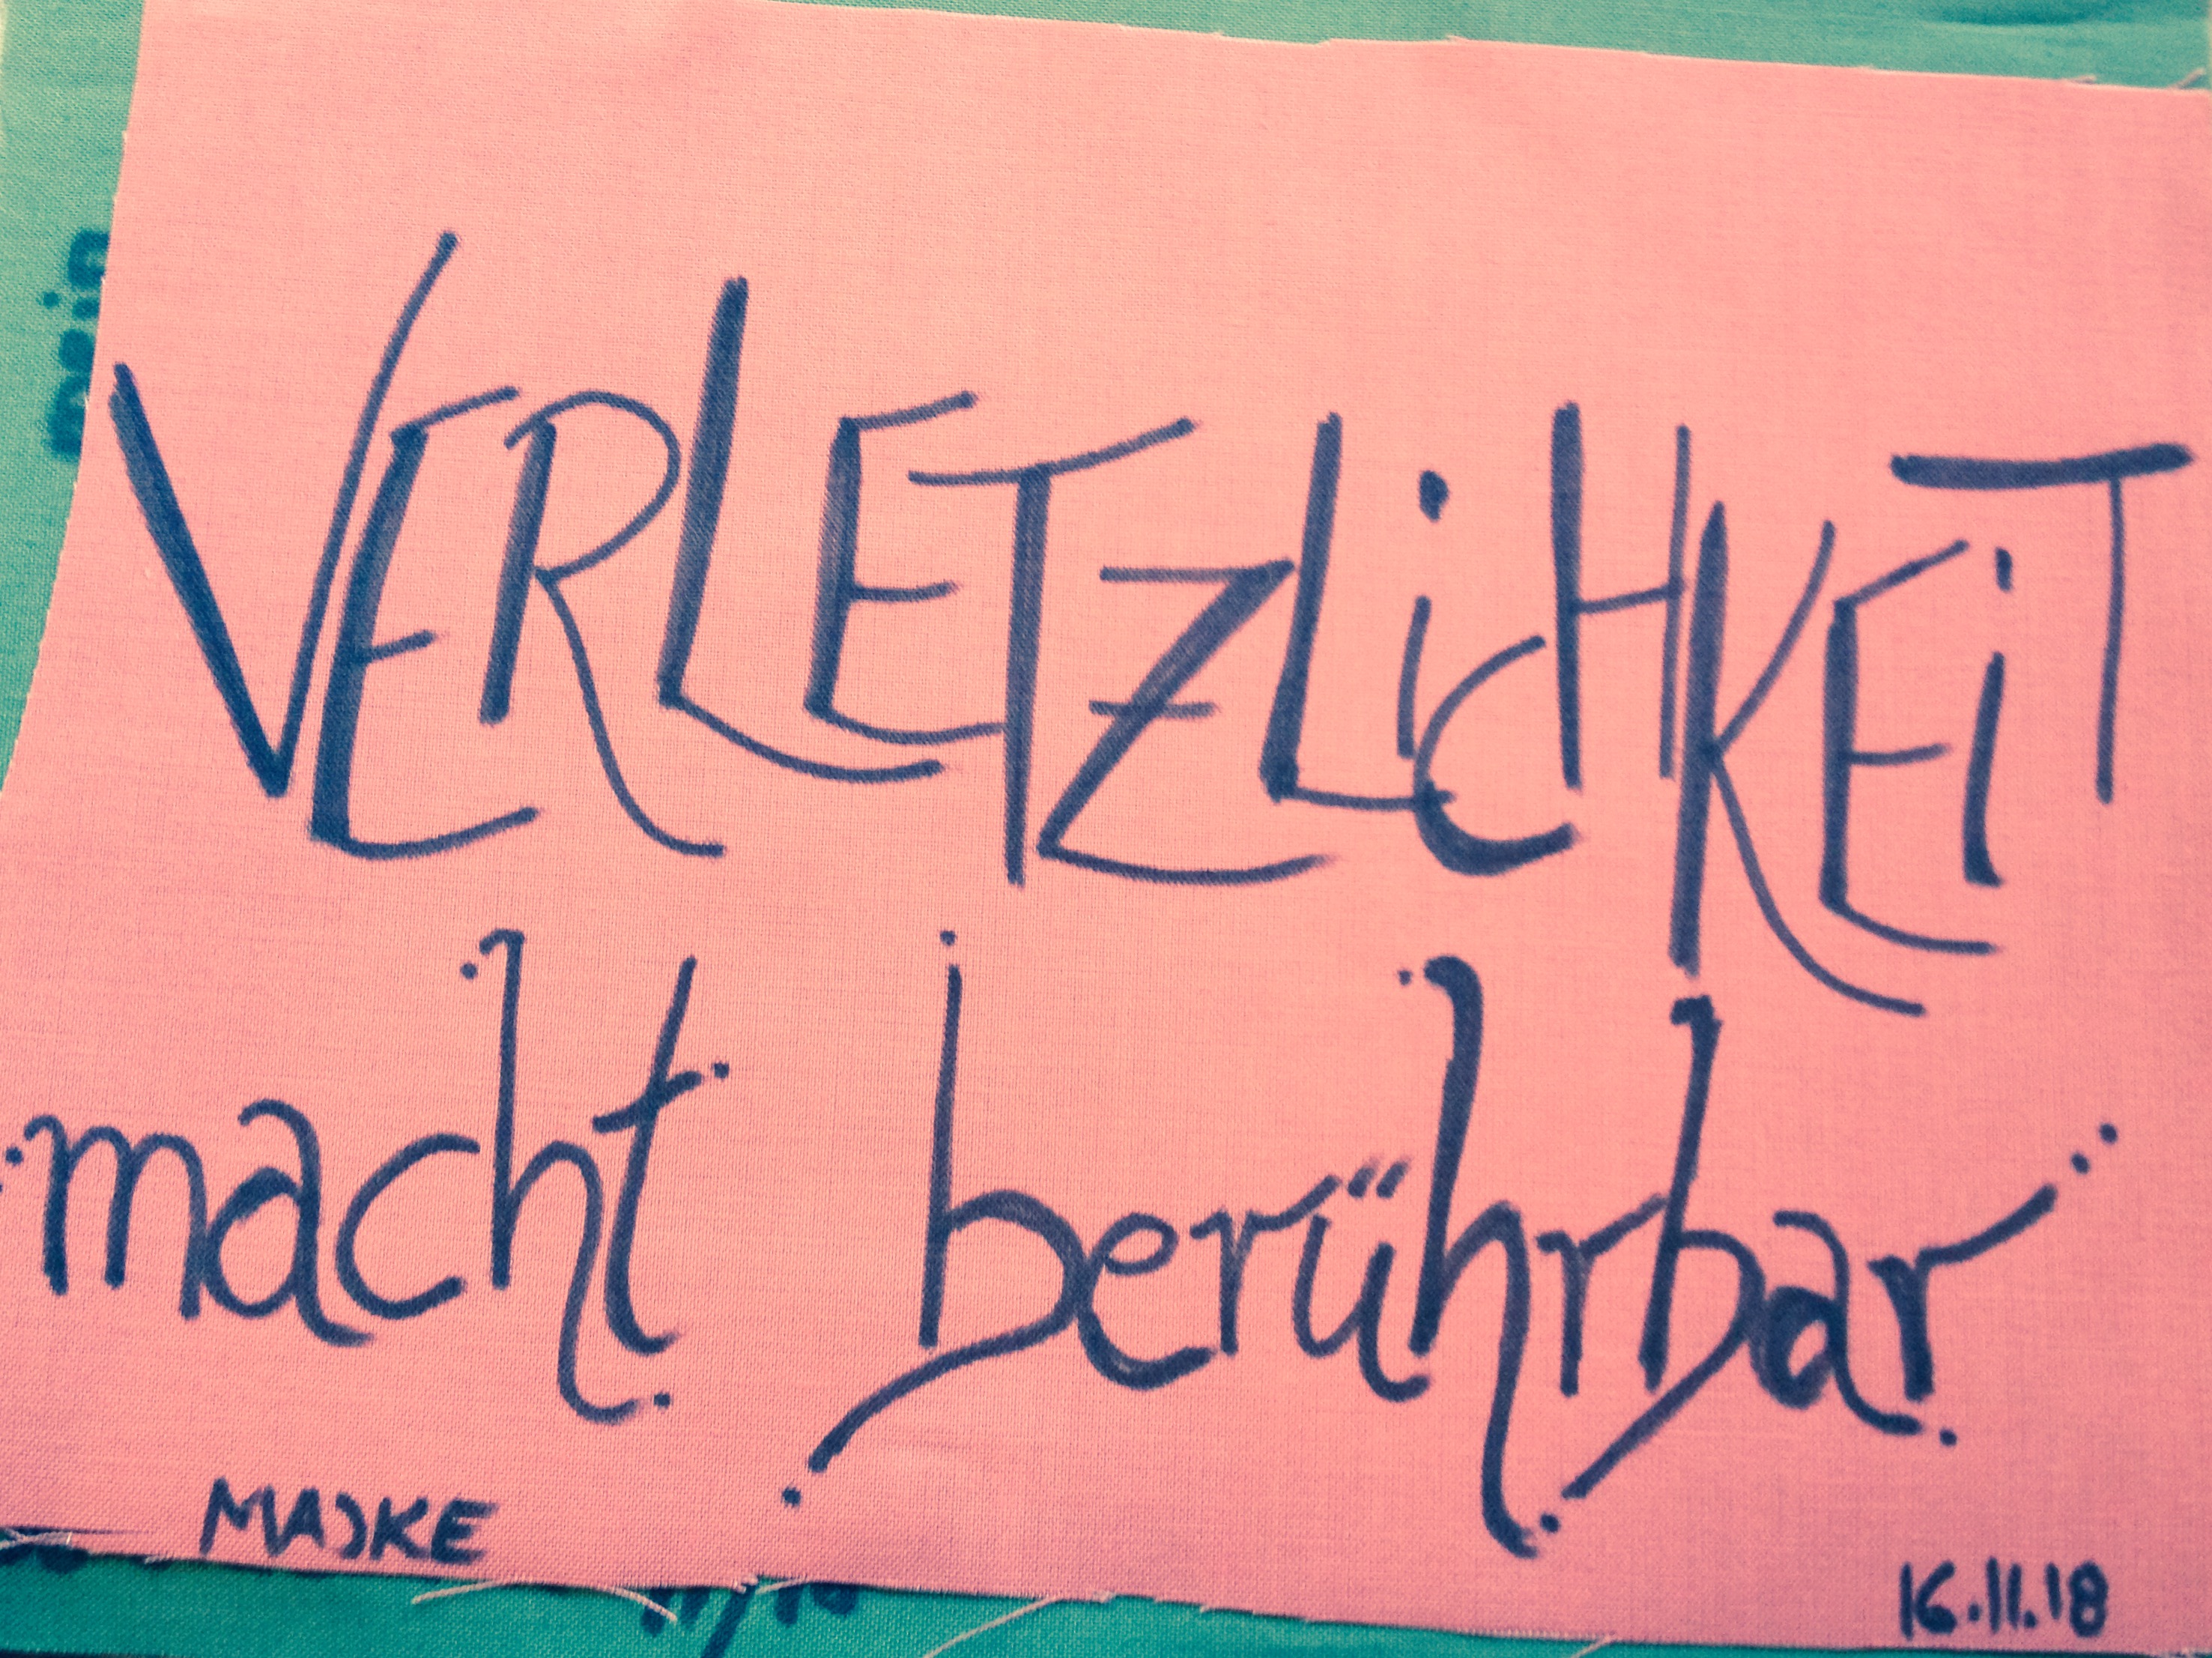 VERLETZLiCHKEiT
macht berührbar
MAJKE
16.11.18